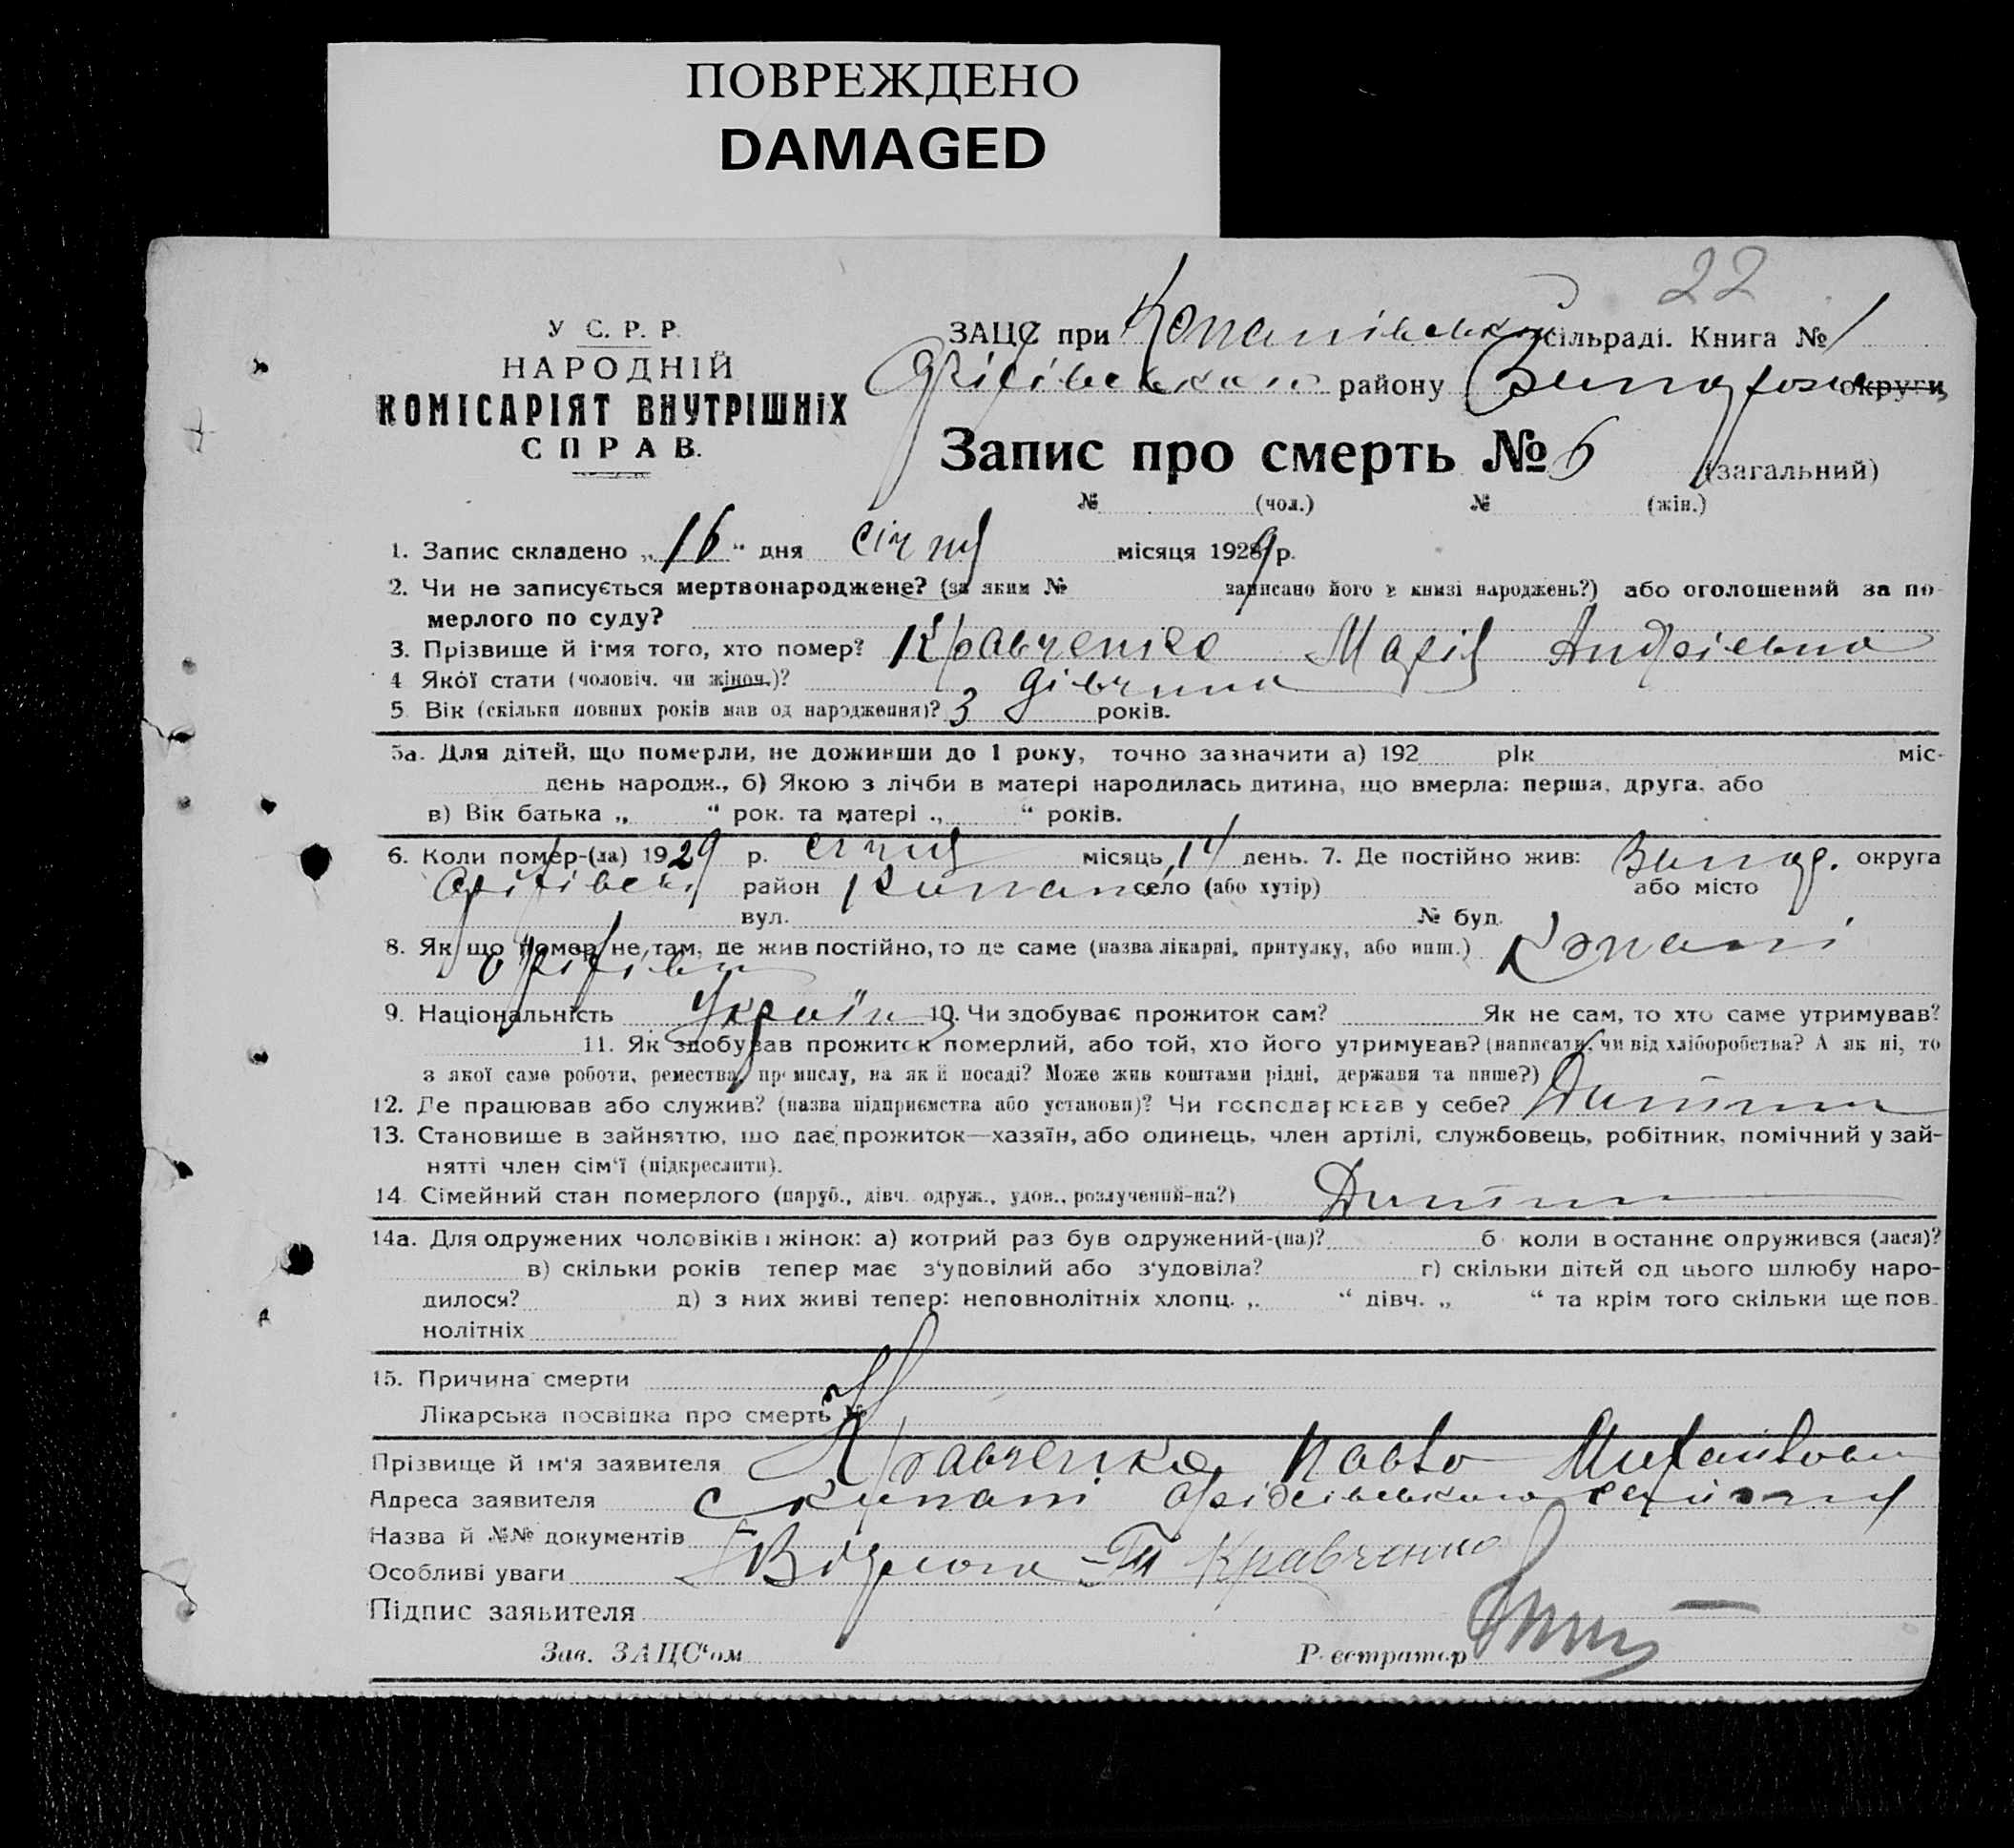 ПОВРЕЖДЕНО
DAMAGED
22
У С. Р. Р.
НАРОДНІЙ
КОМІСАРІЯТ ВНУТРІШНІХ
СПРАВ.
ЗАЦС при Копанівській сільраді. Книга № 1
району округи
Запис про смерть № 6 (загальний)
№ (чол.) № (жін.)
1. Запис складено „16“ дня січня місяця 1929 р.
2. Чи не записується мертвонароджене? (за яким № записано його в книзі народжень?) або оголошений за по-
мерлого по суду?
3. Прізвище й ім'я того, хто помер? Кравченко Марія Андрієвна
4 Якої стати (чоловіч. чи жіноч.)? дівчина
5. Вік (скільки повних років мав од народження)? 3 років.
5а. Для дітей, що померли, не доживши до 1 року, точно зазначити а) 192 рік міс-
день народж., б) Якою з лічби в матері народилась дитина, що вмерла: перша, друга, або
в) Вік батька „ “ рок. та матері „ “ років.
6. Коли помер-(ла) 1929 р. січня місяць 14 день. 7. Де постійно жив: округа
район Копані село (або хутір) або місто
вул. № буд.
8. Як що помер не там, де жив постійно, то де саме (назва лікарні, притулку, або инш.) Копані
9. Національність Україн 10. Чи здобуває прожиток сам? Як не сам, то хто саме утримував?
11. Як здобував прожиток померлий, або той, хто його утримував? (написати, чи від хліборобства? А як ні, то
з якої саме роботи, ремества, промислу, на якій посаді? Може жив коштами рідні, держави та инше?)
12. Де працював або служив? (назва підприємства або установи)? Чи господарював у себе? Дитина
13. Становише в зайняттю, що дає прожиток—хазяїн, або одинець, член артілі, службовець, робітник, помічний у зай-
нятті член сім'ї (підкреслити).
14. Сімейний стан померлого (паруб., дівч. одруж., удов., розлучений-на?) Дитина
14а. Для одружених чоловіків і жінок: а) котрий раз був одружений-(на)? б коли востаннє одружився (лася)?
в) скільки років тепер має з'удовілий або з'удовіла? г) скільки дітей од цього шлюбу наро-
дилося? д) з них живі тепер: неповнолітніх хлопц. „ “ дівч. „ “ та крім того скільки ще пов-
нолітніх
15. Причина смерти
Лікарська посвідка про смерть №
Прізвище й ім'я заявителя Кравченко Павло Михайлович
Адреса заявителя с Копані
Назва й №№ документів
Особливі уваги Кравченко
Підпис заявителя
Зав. ЗАЦС'ом Реєстратор